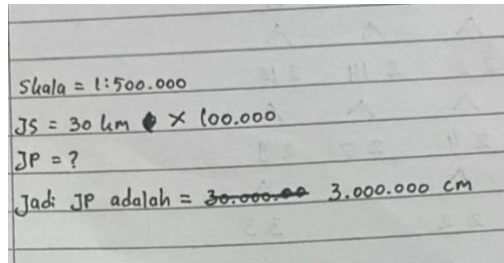 Skala = 1:500.000
JS = 30 km × 100.000
JP = ?
Jadi JP adalah = 30.000.00 3.000.000 cm